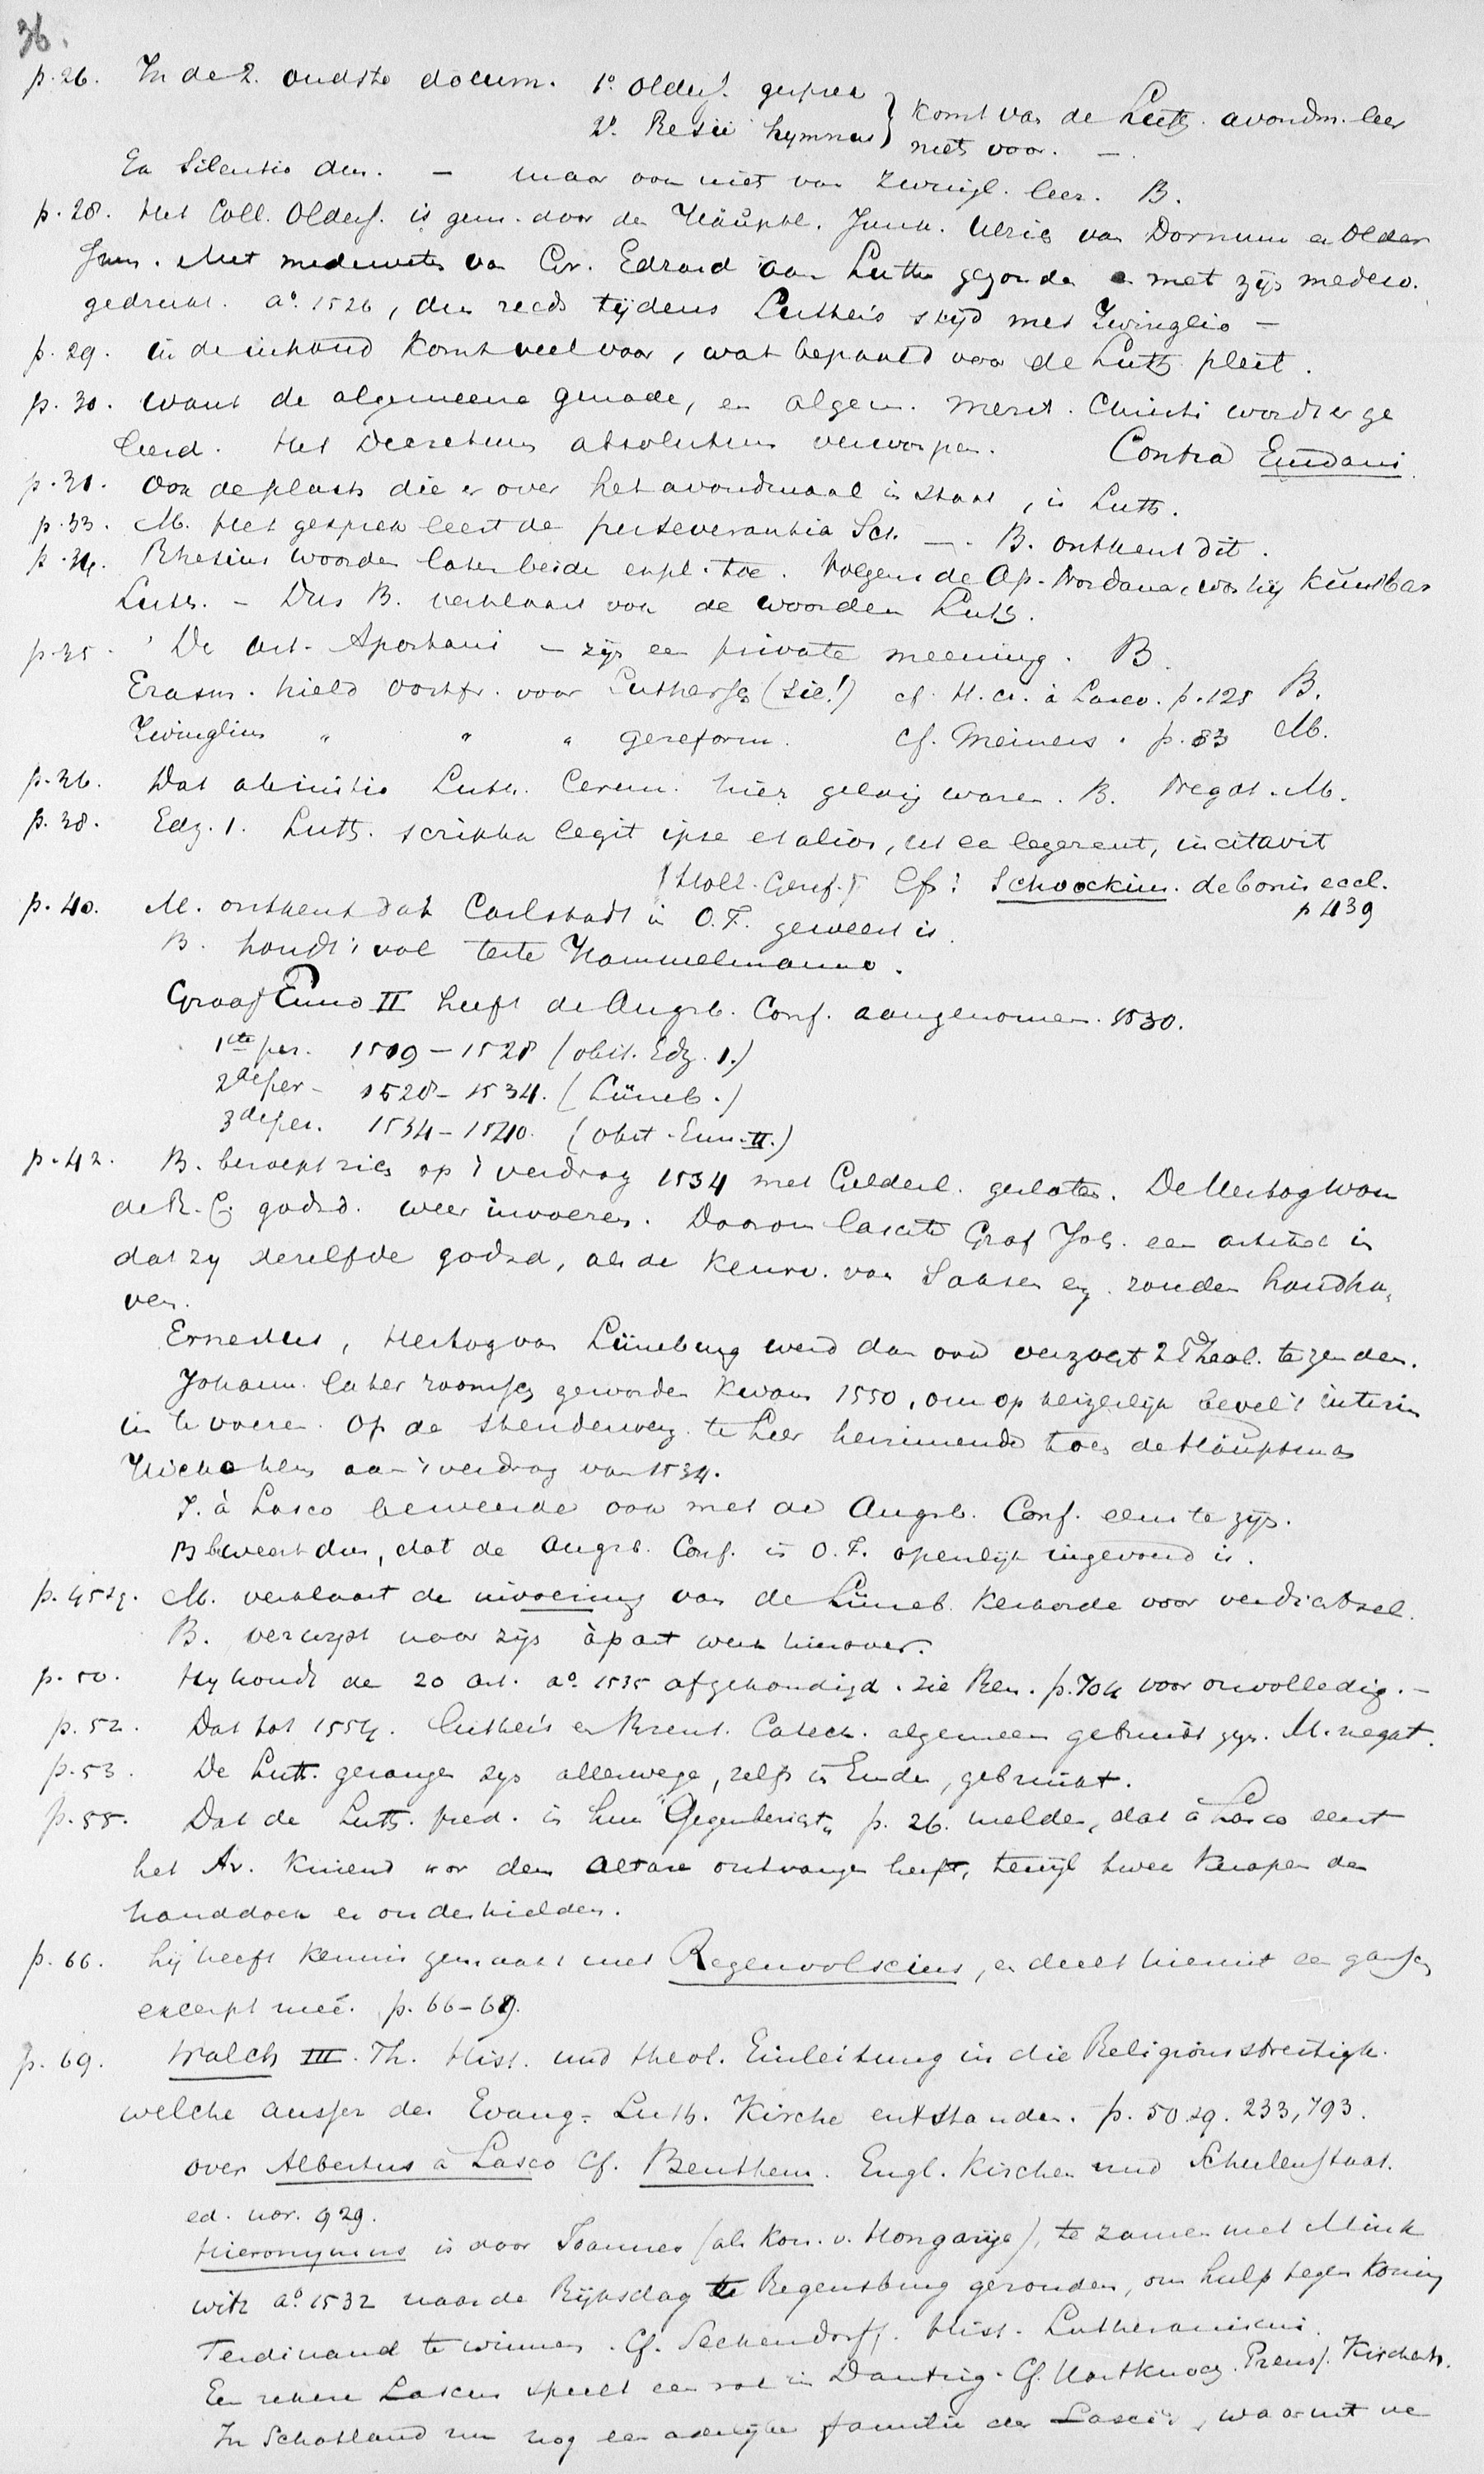 36.
p. 26. In de 2. oudste docum. 1º. Olders. gesprek
2º. Resii hymnus } komt van de Luth. avondm. leer
niet voor. —
Ea Silentio dus. — maar ook niet van Zwingl. leer. B.
p. 28. Het Coll. Olders. is gem. door den Häuptl. Junk. Ulric van Dornum en Older
sum. Met medeweten van Gr. Edzard aan Luther gezonden en met zijn medew.
gedrukt. aº. 1526, dus reeds tijdens Luther's strijd met Zwinglio —
p. 29. in de inhoud komt veel voor, wat bepaald voor de Luth. pleit.
p. 30. want de algemeene genade, en algem. merit. Christi wordt er ge
leerd. Het Decretum absolutum verworpen. Contra Emdani.
p. 31. Ook de plaats die er over het avondmaal in staat, is Luth.
p. 33. M. Het gesprek leert de perseverantia Sct. —. B. ontkent dit.
p. 34. Rhesius woorden laten beide expl. toe. Volgens de Op. Nordana, was hij kenbaar
Luth. – Dus B. verklaart ook de woorden Luth.
p. 35. De art. Aportani – zijn een private meening. B.
Erasm. hield Oostfr. voor Luthersch (sic!) cf. H. a. à Lasco. p. 125 B.
Zwinglius " " " gereform. cf. Meiners. p. 83 M.
p. 36. Dat ab initio Luth. Cerem. hier gelang waren. B. Negat. M.
p. 38. Edz. 1. Luth. scripta legit ipse et alios, ut ea legerent, incitavit
Cf: Schoockium. de bonis eccl.
p 439
p. 40. M. ontkent dat Carlstadt in O. F. geweest is.
B. houdt 't vol teste Hammelmanno.
Graaf Enno II heeft de Augsb. Conf. aangenomen. 1530.
1ste per. 1519 – 1528 (obit. Edz. 1.)
2de per – 1528 – 1534. (Lüneb.)
3de per. 1534 – 1540. (obit. Enn. II.)
p. 42. B. beroept zich op 't verdrag 1534 met Gelderl. gesloten. De Hertog wou
de R. C. godsd. weer invoeren. Daarom laschte Graf Joh. een artikel in
dat zy dezelfde godsd, als de keurv. van Saksen enz. zouden handha„
ven.
Ernestus, Hertog van Lüneburg werd dan ook verzocht 2 Theol. te zenden.
Johann. later roomsch geworden kwam 1550, om op keizerlijk bevel 't interim
in te voeren. Op de Stendenverg. te Leer herinnerde toen de Häuptman
aan 't verdrag van 1534.
J. à Lasco beweerde ook met de Augsb. Conf. eens te zijn.
B beweert dus, dat de Augsb. Conf. in O. F. openlijk ingevoerd is.
p. 45 sq. M. verklaart de invoering van de Lüneb. Kerkorde voor verdichtsel.
B. verwijst naar zijn àpart werk hierover.
p. 50. Hy houdt de 20 art. aº 1535 afgekondigd. zie Ben. p. 704 voor onvolledig. –
p. 52. Dat tot 1554. Luther's en Brent. Catech. algemeen gebruikt zijn. M. negat.
p. 53. De Luth. gezangen zijn allerwege, zelfs in Emden, gebruikt.
p. 55. Dat de Luth. pred. in hun "Gegenbericht„ p. 26. melden, dat à Lasco eerst
het Av. knielend voor den Altare ontvangen heeft, terwijl twee knapen den
handdoek er onderhielden.
p. 66. hij heeft kennis gemaakt met Regenvolscius, en deelt hieruit een gansch
excerpt meê. p. 66–69.
p. 69. Walch III. Th. Hist. und theol. Einleitung in die Religionsstreitigk.
welche ausser der Evang. Luth. Kirche entstanden. p. 50 sq. 233, 793.
over Albertus à Lasco Cf. Benthem. Engl. Kirchen und Schulenstaat.
ed. nov. 929.
Hieronymus is door Joannes (als Kon. v. Hongarije), te zamen met Mink
witz aº 1532 naar de Rijksdag te Regensburg gezonden, om hulp tegen Koning
Ferdinand te winnen. Cf. Seckendorff. Hist. Lutheranismi.
Een zekere Lascus speelt een rol in Dantzig. Cf. Hartknoch. Preuss. Kirchenh.
In Schotland nu nog een adelyke familie der Lascii, waaruit ve